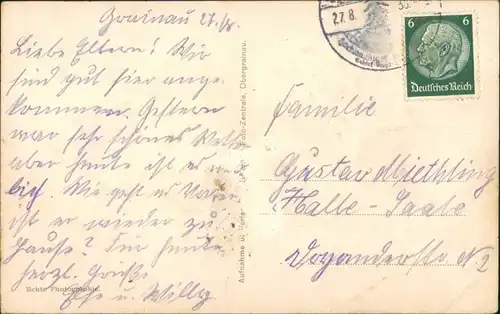 Grainau 27./8.
Liebe Eltern! Wir
sind gut hier ange-
kommen. Gestern
war sehr schönes Wetter
aber heute ist es neb-
lich. Wie geht es Vater
ist er wieder zu
Hause? Für heute
herzl. Grüße
u. Willy
Echte Photographie.
Photo-Zentrale, Obergrainau.
Aufnahme u. Verlag
27.8.
6 6
Deutsches Reich
Familie
Gustav Miethling
Halle-Saale
N 2